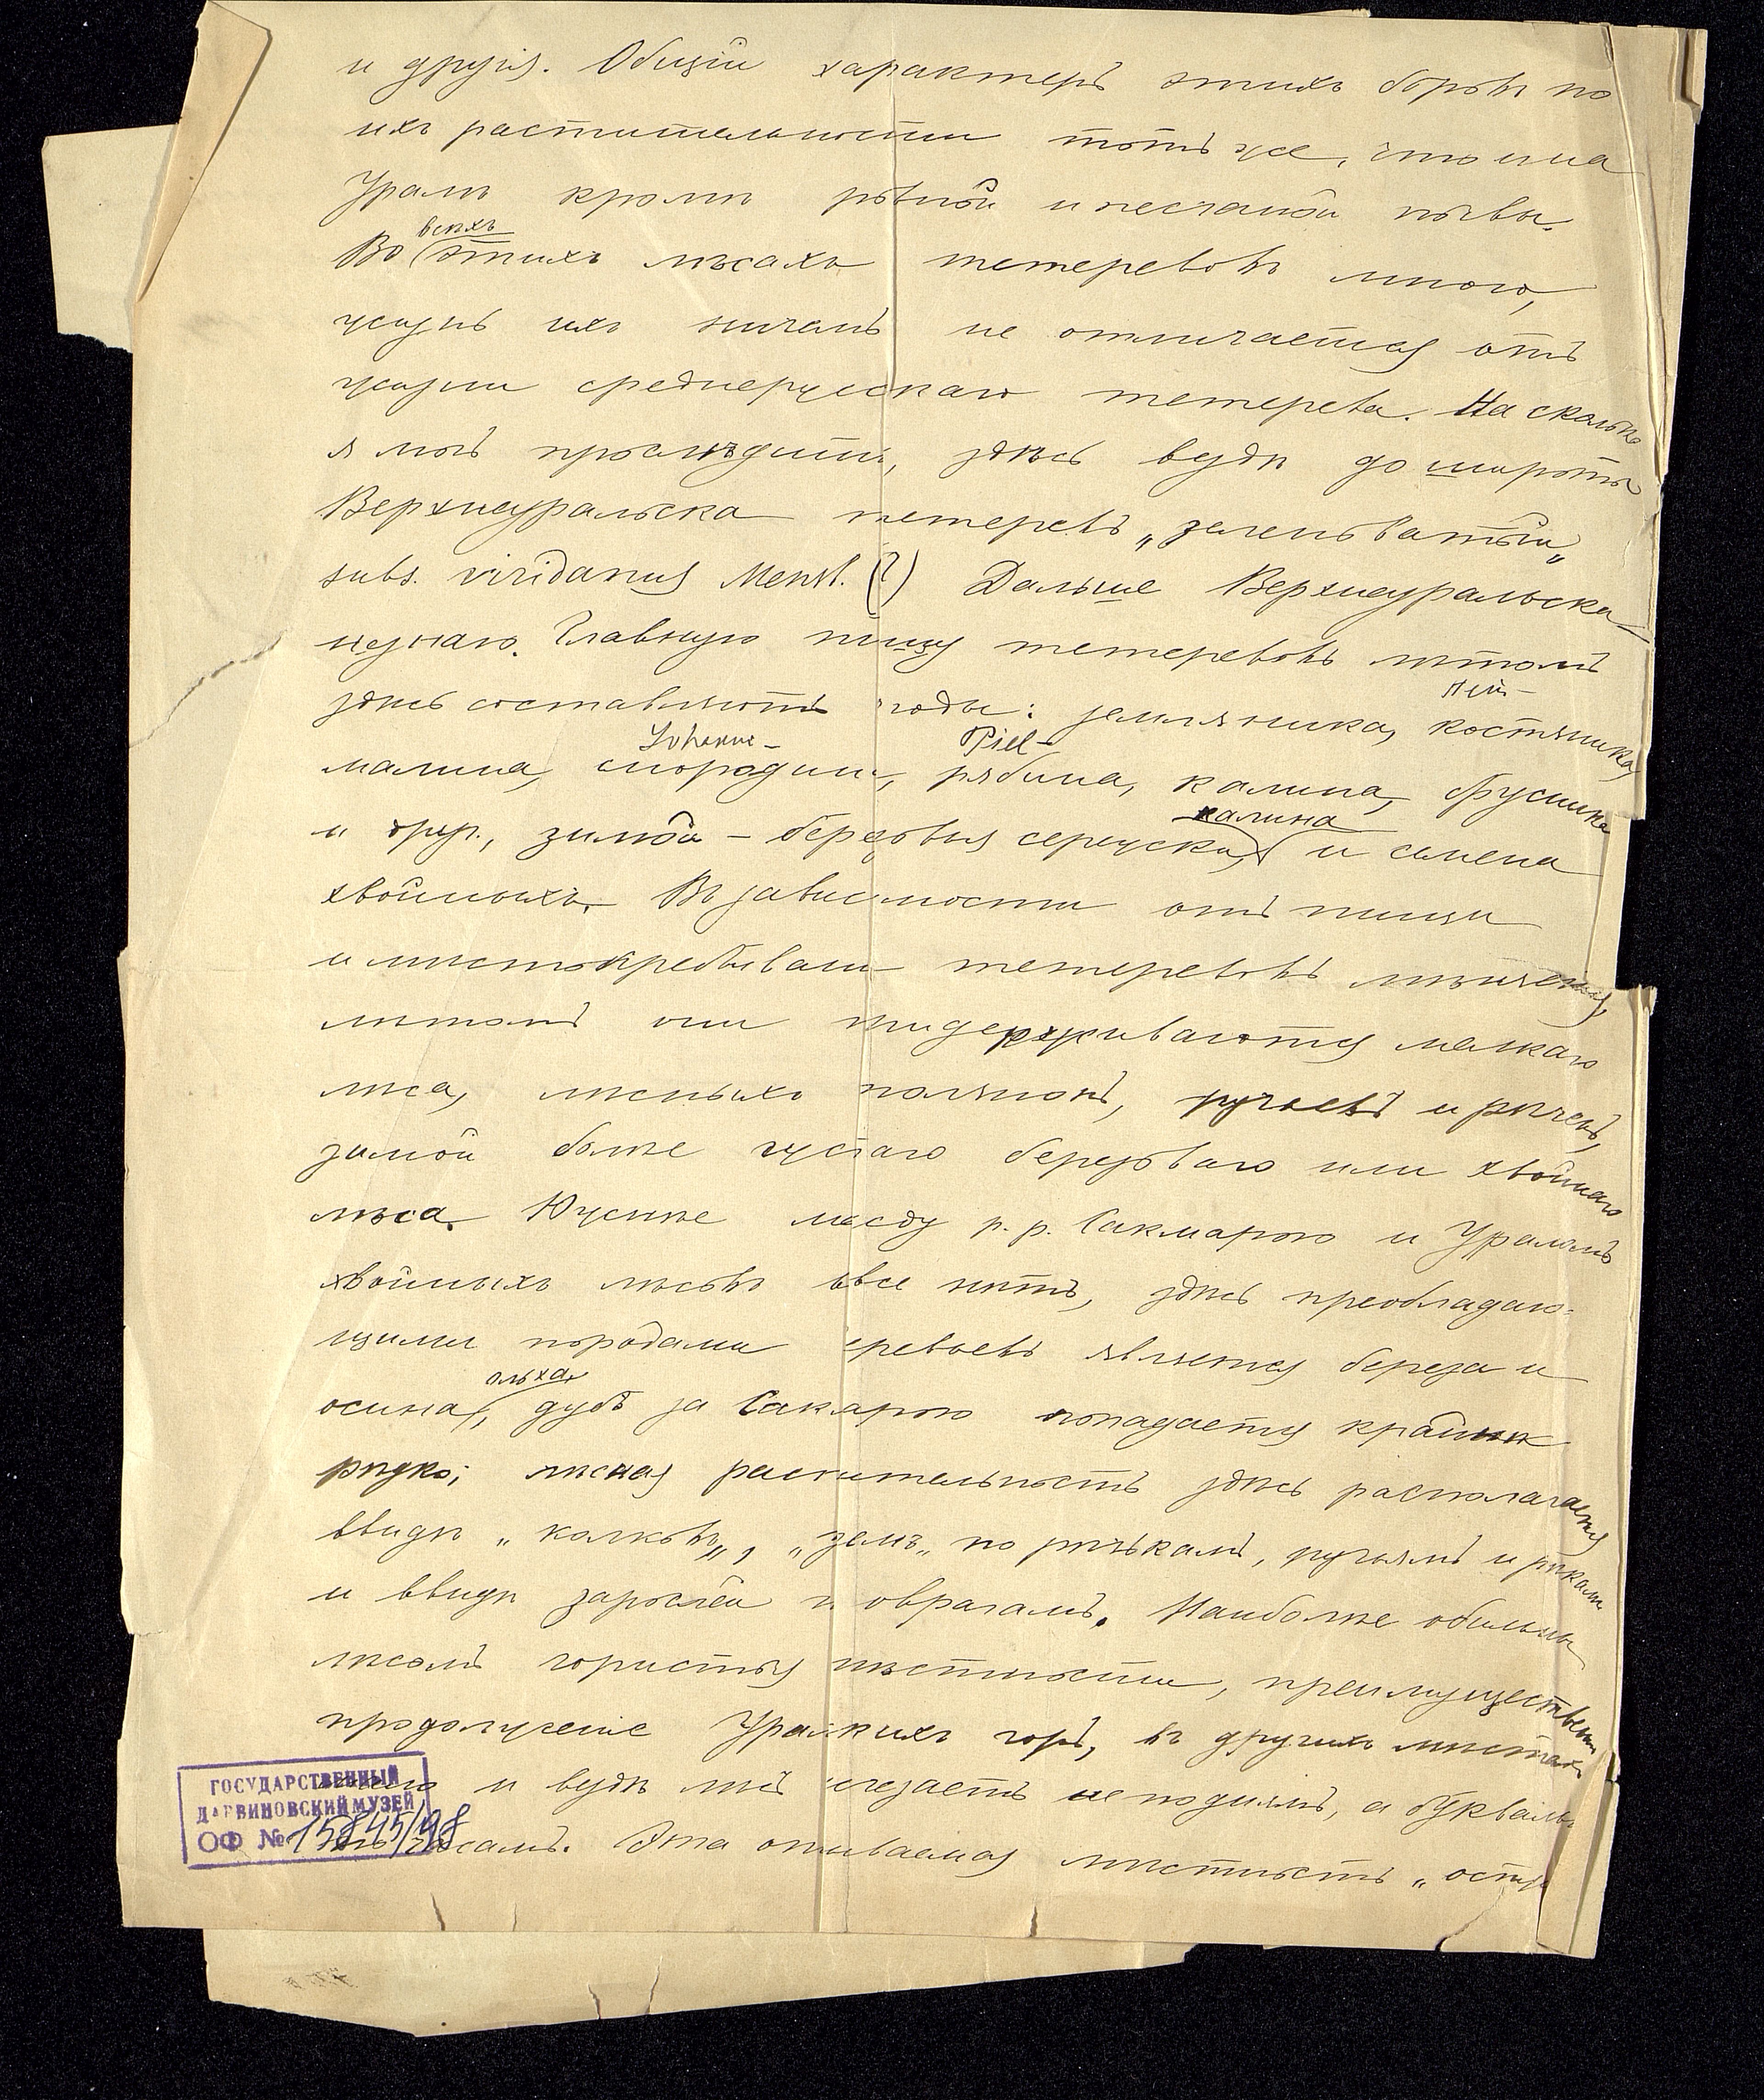 и другія. Общій характеръ этихъ боровъ по
ихъ растительности тотъ же, что и на
Уралѣ кромѣ ровной и песчаной почвы.
всѣхъ
Во этихъ лѣсахъ тетеревовъ много,
жизнь ихъ ничемъ не отличается отъ
жизни среднерусскаго тетерева. На сколько
я могъ прослѣдить, здѣсь вездѣ до широты
Верхнеуральска тетеревъ „зеленоватый„
subs. viridanus Menst. (?) Дальше Верхнеуральска
не знаю. Главную пищу тетеревовъ лѣтомъ
здѣсь составляютъ ягоды: земляника, костяника,
Johanne- Piel-
малина, смородина, рябина, калина, брусника
калина
и друг., зимой – березовыя сережки, и семена
хвойныхъ. Въ зависимости отъ пищи
и мѣстопребываніе тетеревовъ мѣняется,
лѣтомъ они придерживаются мелкаго
лѣса, лѣсныхъ полянокъ, ручьевъ и рѣчекъ,
зимой болѣе густаго березоваго или хвойнаго
лѣса. Южнѣе между р. р. Сакмарою и Ураломъ
хвойныхъ лѣсовъ вовсе нѣтъ, здѣсь преобладаю=
щими породами деревьевъ является береза и
ольха,
осина, дубъ за Сакмарою попадается крайнѣ
рѣдко; лѣсная растительность здѣсь располагается
ввидѣ „колковъ„, по рѣчькамъ, ручьямъ и рѣкамъ
и ввидѣ зарослей по оврагамъ. Наиболѣе обильны
лѣсомъ гористыя мѣстности, преимущественно
продолженіе Уральскихъ горъ, въ другихъ мѣстахъ
и вездѣ лѣсъ исчезаетъ не по днямъ, а букваль
по часамъ. Эта описываемая мѣстность „остр
ГОСУДАРСТВЕННЫЙ
ДАРВИНОВСКИЙ МУЗЕЙ
ОФ № 15845/98